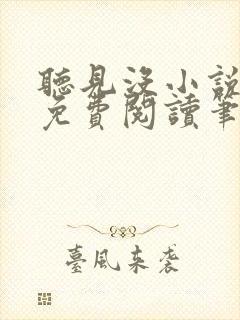 聽見沒小說
免費閱讀筆
臺風來袭